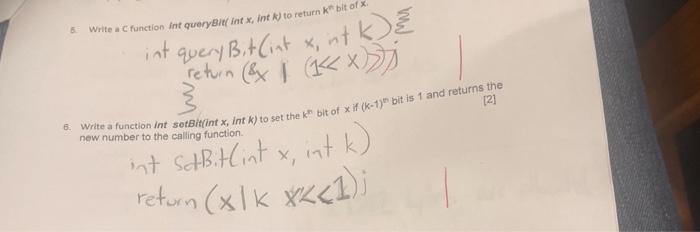 5. Write a C function int queryBit( int x, int k) to return kth bit of x.
int queryBit(int x, int k){
return (&x | (1<< x)>>);
}
6. Write a function int setBit(int x, int k) to set the kth bit of x if (k-1)th bit is 1 and returns the
new number to the calling function. [2]
int SetBit(int x, int k)
return (x|k x<<1);